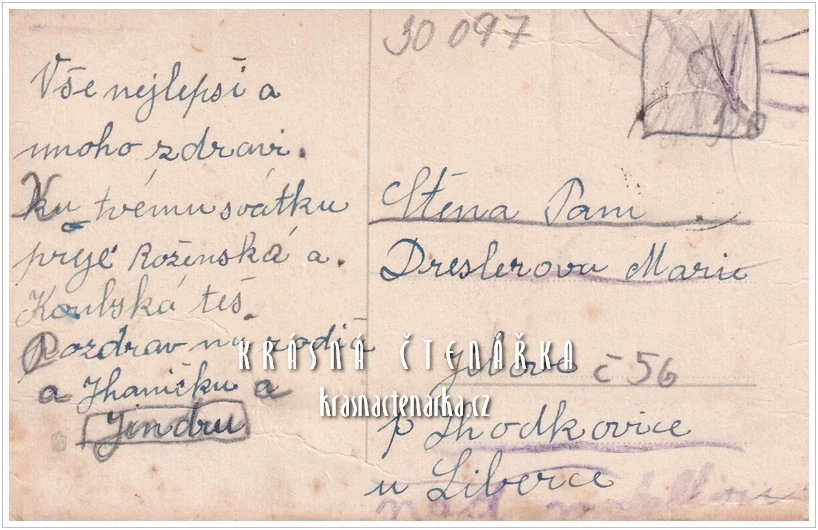 30 097
Vše nejlepší a
mnoho zdraví.
Ku tvému svátku
prýé Roženská a.
Koulská též.
Pozdrav
a Jhaničku a
Jindru
Ctěna Pani
Dreslerova Marie
č 56
p Jhodkovice
u Liberce
KRÁSNÁ ČTENÁŘKA
krasnactenarka.cz